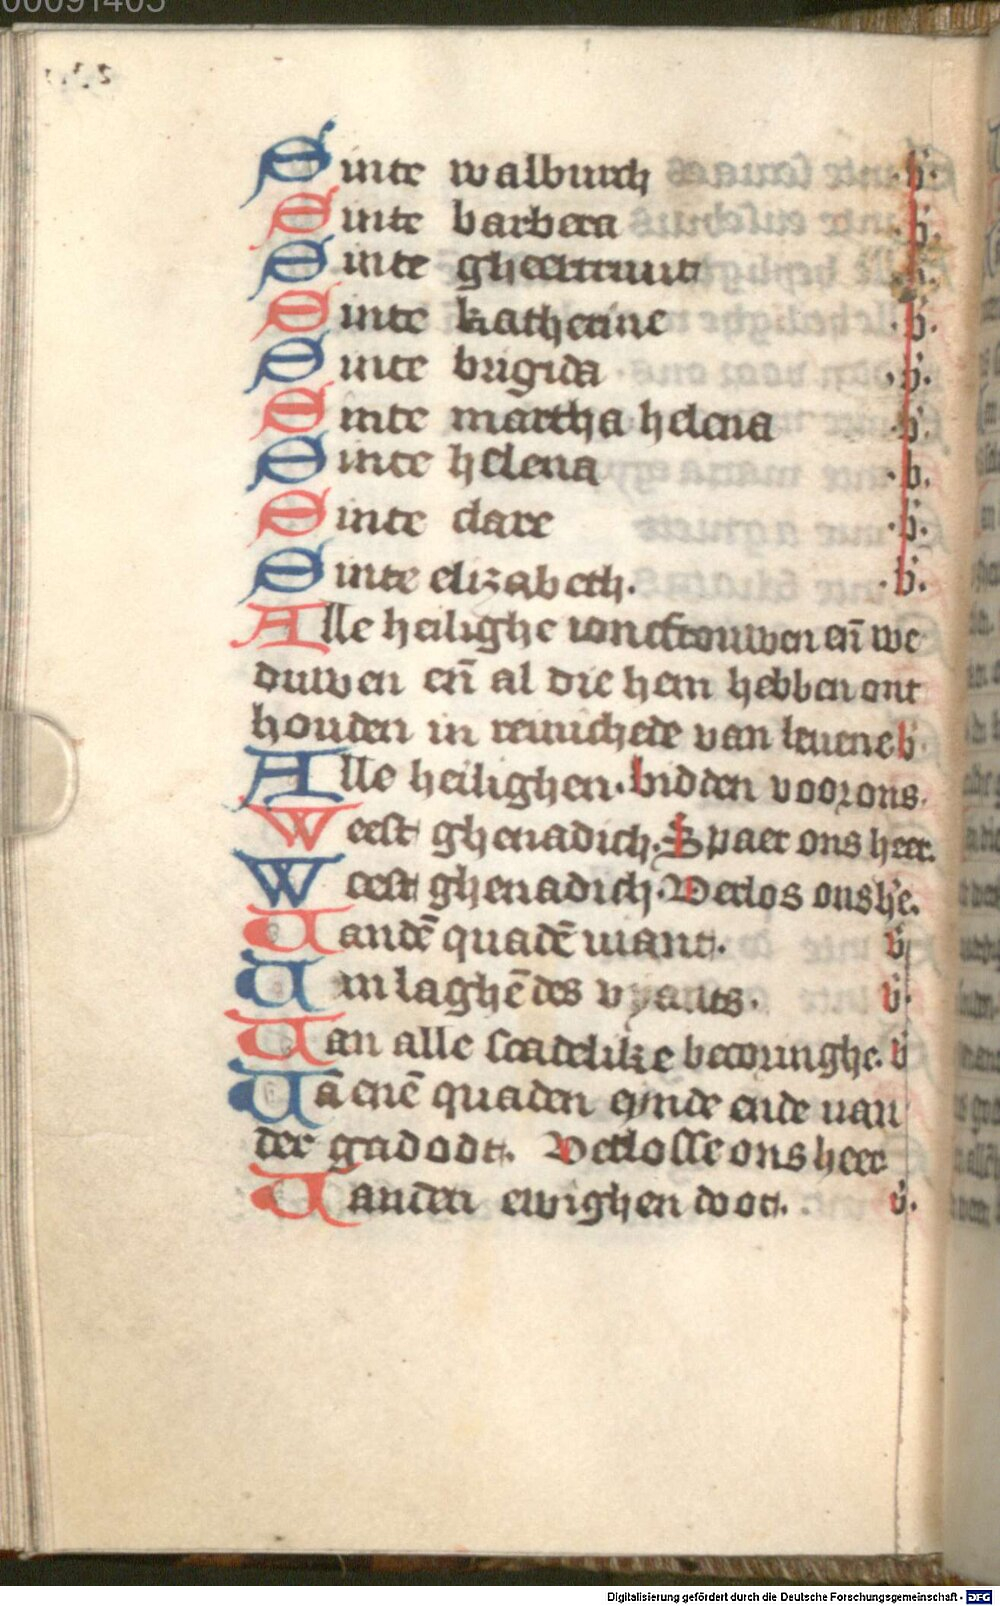 00091405
Sinte walburch .b.
Sinte barbera .b.
Sinte gheertruut .b.
Sinte katherine .b.
Sinte brigida .b.
Sinte martha helena .b.
Sinte helena .b.
Sinte clare .b.
Sinte elizabeth. .b.
Alle heilighe ioncfrouwen eñ we
duwen eñ al die hem hebben ont
houden in reinichede van leuene b.
Alle heilighen. bidden voor ons.
Weest ghenadich. Spaer ons heer.
Weest ghenadich. Verlos ons he.
Vandē quadē uiant. v
Vin laghē des vyants. v.
Van alle scadelike becoringhe. v
Vā enē quaden eynde ende uan
der gadoot. Verlosse ons heer
Vanden ewighen doot. v.
Digitalisierung gefördert durch die Deutsche Forschungsgemeinschaft - DFG